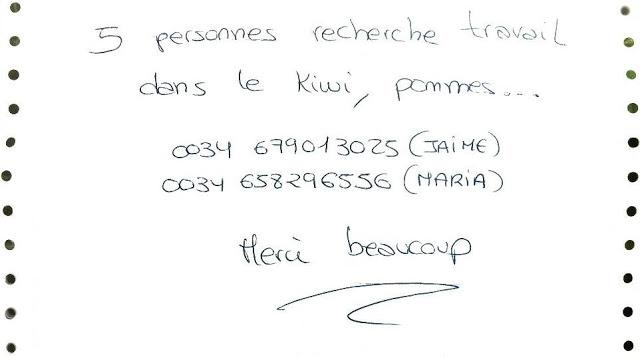 5 personnes recherche travail
dans le Kiwi, pommes...
0034 679013025 (JAIME)
0034 658296556 (MARIA)
Merci beaucoup